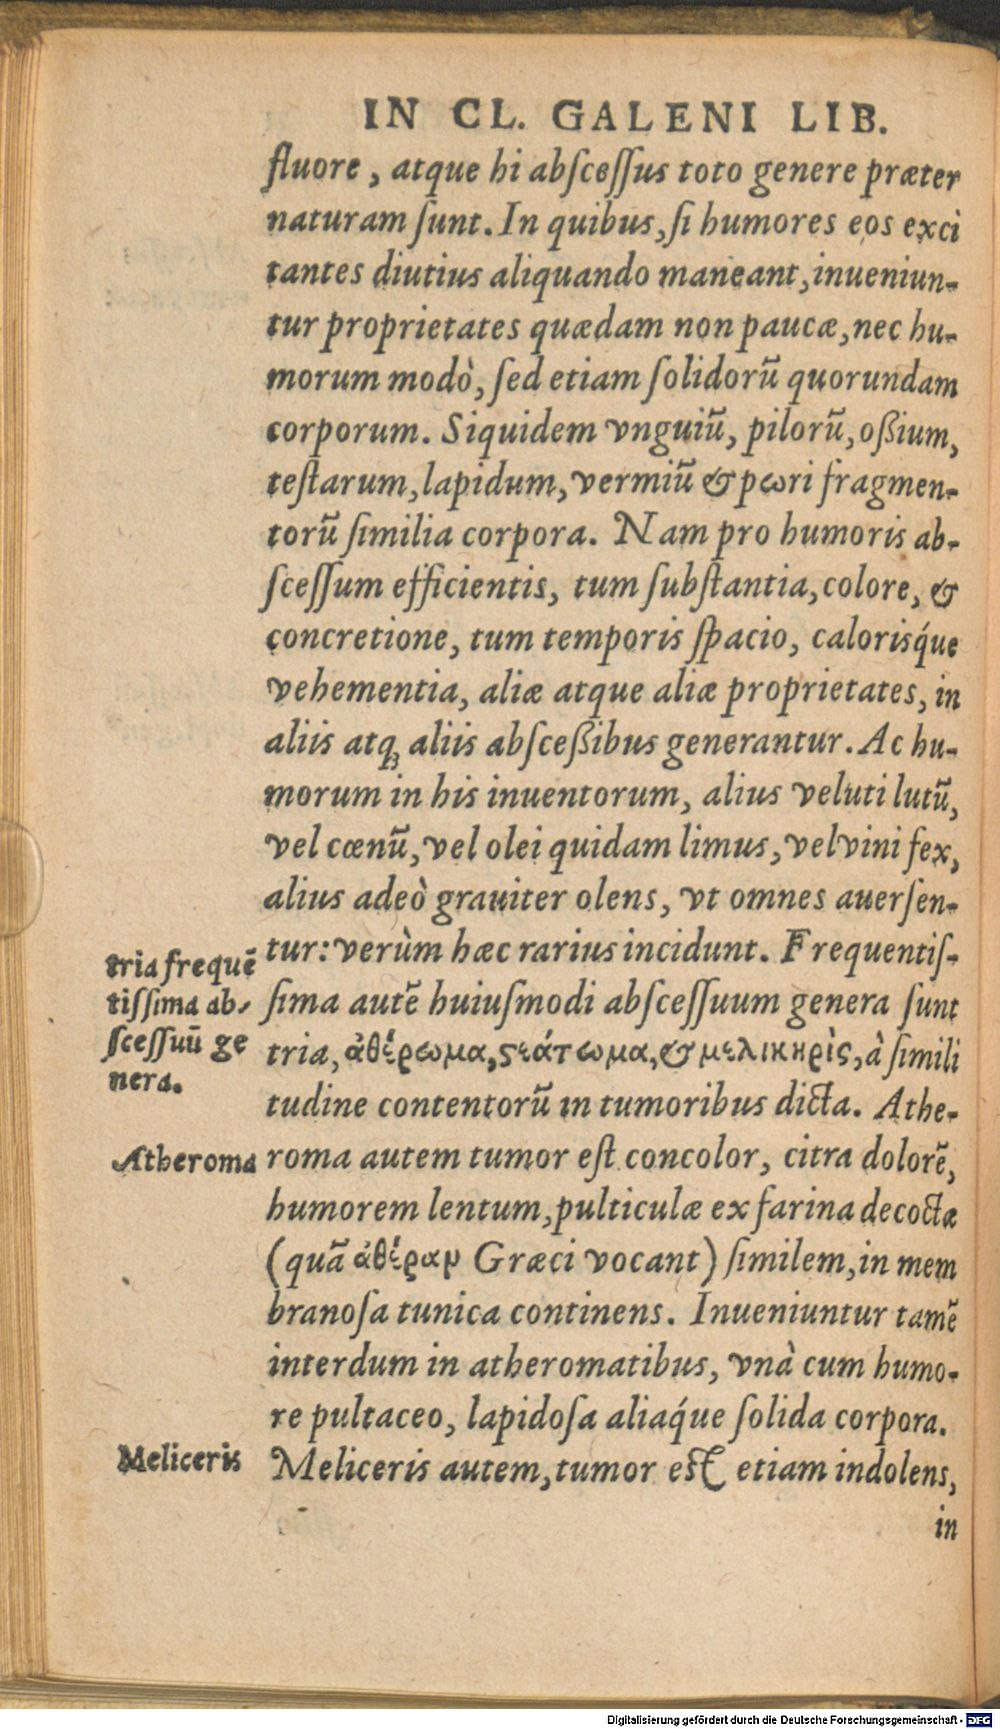 IN CL. GALENI LIB.
fluore, atque hi abſceſſus toto genere præter
naturam ſunt. In quibus, ſi humores eos exci
tantes diutius aliquando maneant, inueniun-
tur proprietates quædam non paucæ, nec hu-
morum modò, ſed etiam ſolidorũ quorundam
corporum. Siquidem vnguiũ, pilorũ, oßium,
teſtarum, lapidum, vermiũ & pωri fragmen-
torũ ſimilia corpora. Nam pro humoris ab-
ſceſſum efficientis, tum ſubſtantia, colore, &
concretione, tum temporis ſpacio, calorisq́ue
vehementia, aliæ atque aliæ proprietates, in
aliis atqꝫ aliis abſceßibus generantur. Ac hu-
morum in his inuentorum, alius veluti lutũ,
vel cœnũ, vel olei quidam limus, vel vini fex,
alius adeò grauiter olens, vt omnes auerſen-
tur: verùm hæc rarius incidunt. Frequentiſ-
ſima autẽ huiuſmodi abſceſſuum genera ſunt
tria, ἀθέρωμα, ϛεάτωμα, & μελικηρὶς, à ſimili
tudine contentorũ in tumoribus dicta. Athe-
roma autem tumor eſt concolor, citra dolorẽ,
humorem lentum, pulticulæ ex farina decoctæ
(quã ἀθέραν Græci vocant) ſimilem, in mem
branoſa tunica continens. Inueniuntur tamẽ
interdum in atheromatibus, vnà cum humo-
re pultaceo, lapidoſa aliaq́ue ſolida corpora.
Meliceris autem, tumor est etiam indolens,
in
tria frequẽ
tiſſima ab-
ſceſſuũ ge
nera.
Atheroma
Meliceris
Digitalisierung gefördert durch die Deutsche Forschungsgemeinschaft - DFG